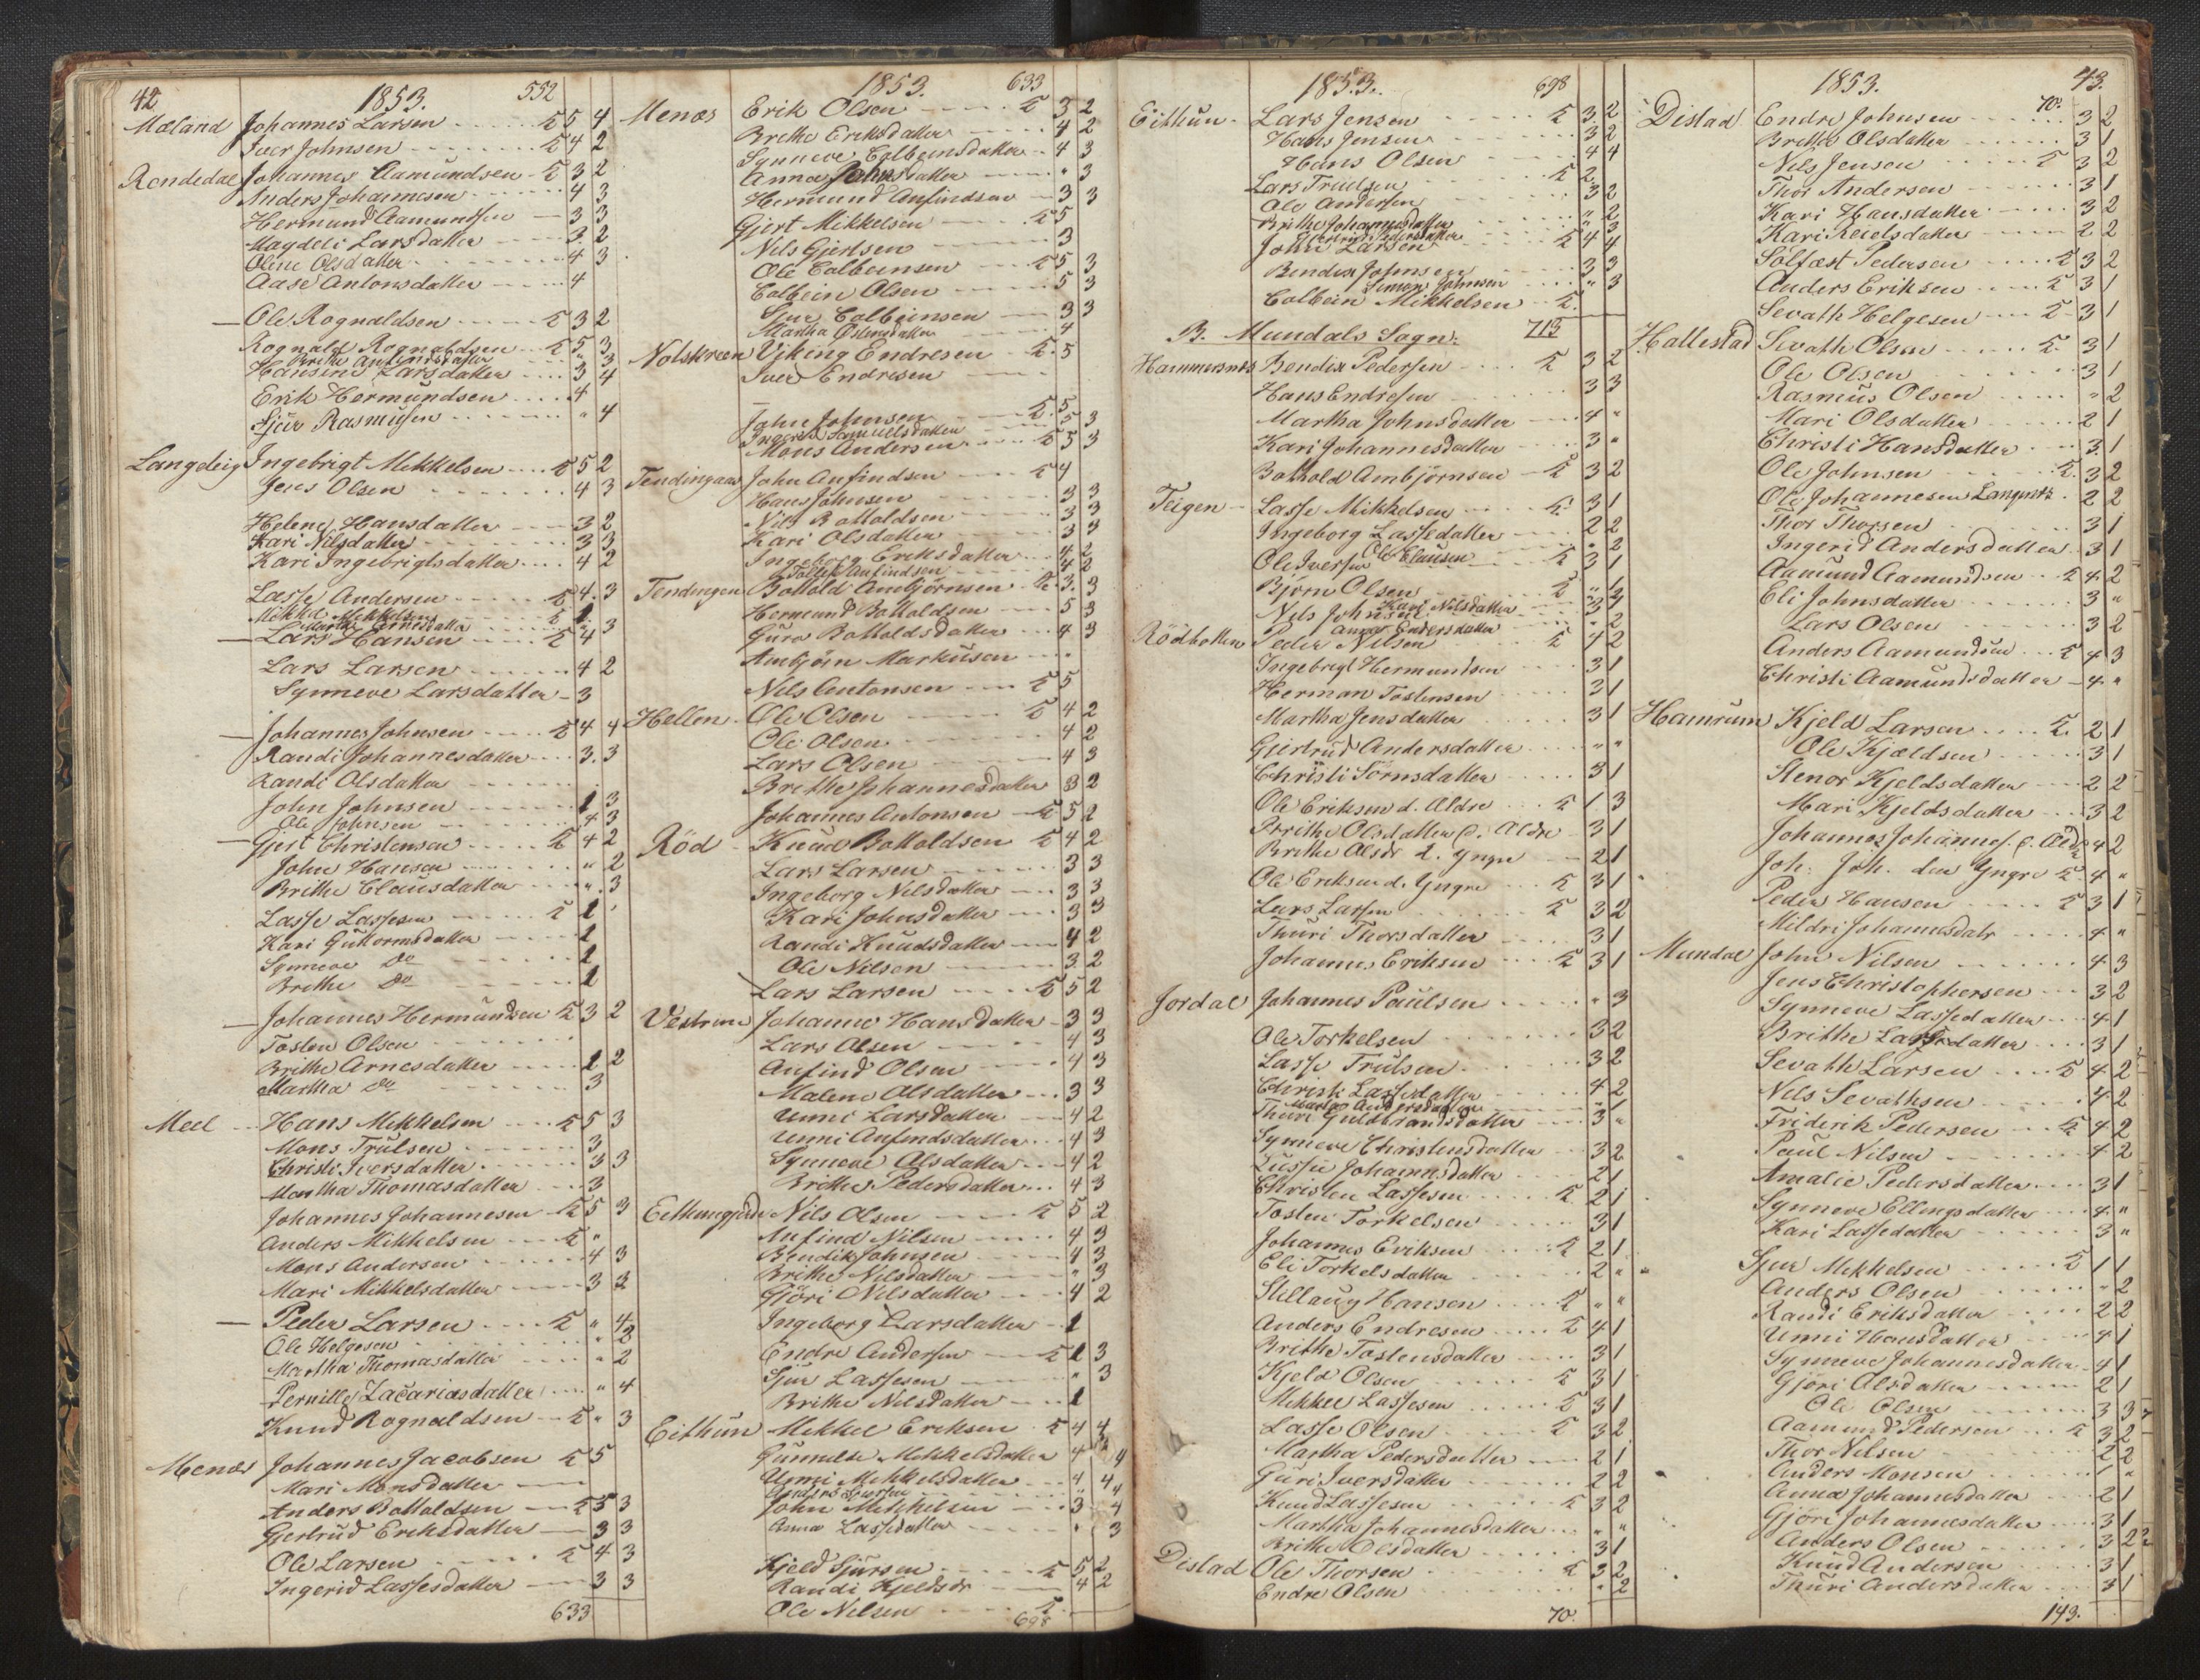 42 1853. 552
Mæland Johannes Larsen K 5 4
Iver Johnsen K 4 2
Rendedal Johannes Aamundsen K 3 2
Anders Johannesen 4 3
Hermund Aamundsen 3 3
Magdeli Larsdatter 3 2
Oline Olsdatter 4 3
Aase Antonsdatter 4
Ole Rognaldsen K 3 2
Rognald Rognaldsen K 5 3
Brithe Anfindsdatter " 3
Hansine Larsdatter 3 4
Erik Hermundsen 4
Sjur Rasmusen " 4
Langeteig Ingebrigt Mikkelsen K 5 2
Jens Olsen 4 3
Helene Hansdatter 3 2
Kari Nilsdatter 3 3
Kari Ingebrigtsdatter 4 2
Lasse Andersen K 4 3
Mikkel Mikkelsen K 1
Martha Arnesdatter " 3
Lars Hansen K 4
Lars Larsen 4 2
Synneve Larsdatter 3
Johannes Johnsen K 4 4
Randi Johannesdatter 3 3
Randi Olsdatter
John Johnsen 1 3
Ole Johnsen 4 3
Gjert Christensen K 4 2
John Hansen " 2
Brithe Clausdatter " 3
Lasse Lassesen K 1
Kari Guttormsdatter 1
Synneve Do 1
Brithe Do 1
Johannes Hermundsen K 3 2
Tosten Olsen
Brithe Arnesdatter 1 2
Martha Do 3
Meel Hans Mikkelsen K 5 3
Mons Trulsen 3
Christi Iversdatter 3 3
Martha Thomasdatter 3
Johannes Johannesen K 5 3
Anders Mikkelsen K "
Mons Andersen 4 3
Mari Mikkelsdatter 3 3
Peder Larsen K " 4
Ole Helgesen " 2
Martha Thomasdatter " 2
Pernille Zacariasdatter " 4
Knud Rognaldsen K " 3
Menæs Johannes Jacobsen K 5
Mari Monsdatter
Anders Bottoldsen K 5 3
Gjertrud Eriksdatter 3 3
Ole Larsen K 4 3
Ingerid Lassesdatter 3 3
633
1853. 633
Menæs Erik Olsen K 3 2
Brithe Eriksdatter 4 2
Synneve Colbeinsdatter 4 3
Anna Johnsdatter " 3
Hermund Anfindsen 3 3
Gjert Mikkelsen K 5
Nils Gjertsen 3
Ole Colbeinsen K 5 3
Colbein Olsen 5 3
Sjur Colbeinsen 3 3
Martha Ostensdatter 4
Nolskreen Viking Endresen K 5
Iver Endresen
John Johnsen K 5
Ingerid Samuelsdatter 5 3
Mons Andersen K 5 3
Tendingaas John Anfindsen K 4
Hans Johnsen 3 3
Nils Bottoldsen 3 3
Kari Olsdatter 3 3
Ingeborg Eriksdatter 4 2
Tollef Anfindsen 4 2
Tendingen Bottold Ambjörnsen K 3 3
Hermund Bottoldsen 5 3
Guro Bottoldsdatter 4 3
Ambjörn Markusen
Nils Antonsen K 5
Hellen Ole Olsen K 4 2
Ole Olsen 4 2
Lars Olsen 4 3
Brithe Johannesdatter 3 2
Johannes Antonsen K 5 2
Röd Knud Bottoldsen K 4 2
Lars Larsen 3 3
Ingeborg Nilsdatter 3 3
Kari Johnsdatter 3 3
Randi Knudsdatter 4 2
Ole Nilsen 3 2
Lars Larsen K 5 2
Vestreim Johanne Hansdatter 3 3
Lars Olsen 4 3
Anfind Olsen 4 3
Malene Olsdatter 3 3
Unni Larsdatter 4 2
Unni Anfindsdatter 4 3
Synneve Olsdatter 4 2
Brithe Pedersdatter 4 3
Eithungjerde Nils Olsen K 5 2
Anfind Nilsen 4 3
Bendik Johnsen 4 3
Brithe Nilsdatter " 3
Gjöri Nilsdatter 4 2
Ingeborg Larsdatter 1
Endre Andersen K 1 3
Sjur Lassesen " 3
Brithe Nilsdatter 1
Eithun Mikkel Eriksen K 4 4
Gunnilde Mikkelsdatter 4 4
Unni Mikkelsdatter 4 4
Anders Iversen " 4
John Mikkelsen 3 4
Anna Lassedatter " 3
Kjeld Sjursen K 5 2
Randi Kjeldsdr 4 2
Ole Nilsen K
698
1853. 698
Eithun Lars Jensen K 3 2
Hans Jensen 3 2
Hans Olsen 4 4
Lars Truelsen K 2
Ole Andersen 3 2
Brithe Johannesdatter " 2
Gjertrud Pedersdatter " 3
John Larsen K 4 4
Bendix Johnsen 3 3
Simon Johnsen " 3
Colbein Mikkelsen K
B. Mundals Sogn: 713
Hammersnes Bendix Pedersen K 3 2
Hans Endresen 3 3
Martha Johnsdatter 4 "
Kari Johannesdatter 3 "
Bottold Ambjörnsen K 3 2
Teigen Lasse Mikkelsen K 3 1
Ingeborg Lassedatter 2 2
Ole Clausen " 2
Ole Iversen K 3 1
Björn Olsen K " 2
Kari Nilsdatter
Nils Johnsen 3 3
Anna Endersdatter " 2
Rödbotten Peder Nilsen K 4 2
Ingebrigt Hermundsen 3 1
Herman Tostensen 3 1
Martha Jensdatter 3 1
Gjertrud Andersdatter " "
Christi Sörensdatter 3 1
Ole Eriksen d. Ældre K 1 3
Brithe Olsdatter d. Aldre 3 1
Brithe Olsdr d. Yngre 2 1
Ole Eriksen d. Yngre K 3 1
Lars Larsen K 3 2
Thuri Thorsdatter 3 1
Johannes Eriksen K 3 1
Jordal Johannes Paulsen " 3
Ole Torkelsen 3 2
Lasse Trulsen 3 2
Christi Lassedatter 4 2
Martha Andersdatter " 1
Thuri Guldbrandsdatter 3 "
Synneve Christensdatter 3 2
Lussie Johannesdatter 2 1
Christen Lassesen K 2 1
Tosten Torkelsen 3 1
Johannes Eriksen K 2 1
Eli Torkelsdatter 2 "
Stillaug Hansen K " "
Anders Endresen K 4 1
Brithe Tostensdatter 3 1
Kjeld Olsen K 3 1
Mikkel Lassesen K 3 1
Lasse Olsen K 3 2
Martha Pedersdatter 2 1
Guri Iversdatter 2 2
Knud Lassesen K 3 2
Martha Johannesdatter " "
Brithe Olsdatter 3 1
Distad Ole Thorsen K 3 2
Endre Olsen " 2
70.
1853. 43.
70.
Distad Endre Johnsen 3 2
Brithe Olsdatter 3 1
Nils Jensen K 3 2
Thor Andersen 3 1
Kari Hansdatter 3 2
Kari Reielsdatter 2 2
Solfæst Pedersen K 3 2
Anders Eriksen K 3 1
Sevath Helgesen K 3 1
Hallestad Sevath Olsen K 3 1
Ole Olsen 3 1
Rasmus Olsen " 2
Mari Olsdatter 2 1
Christi Hansdatter 3 1
Ole Johnsen K 3 2
Ole Johannesen 2 2
Thor Thorsen 3 1
Ingerid Andersdatter 3 1
Aamund Aamundsen K 4 2
Eli Johnsdatter 3 "
Lars Olsen 3 2
Anders Aamundsen K 4 3
Christi Aamundsdatter 4 "
Hamrum Kjeld Larsen K 2 1
Ole Kjældsen 3 1
Stenor Kjeldsdatter 2 2
Mari Kjeldsdatter 3 2
Johannes Johannes. d. Æld. 4 2
Joh: Joh. den Yngre K 4 "
Peder Hansen K 3 1
Mildri Johannesdatr 4 "
Mundal John Nilsen 4 3
Jens Christophersen 3 2
Synneve Lassedatter 4 1
Brithe Lassedatter 3 1
Sevath Larsen K 4 2
Nils Sevathsen 4 2
Friderik Pedersen K 4 2
Paul Nilsen 4 2
Amalie Pedersdatter 3 1
Synneve Ellingsdatter 4 "
Kari Lassedatter 3 "
Sjur Mikkelsen K 1 1
Anders Olsen " 2
Randi Eriksdatter 2 2
Unni Hansdatter 4 1
Synneve Johannesdatter 4 1
Gjöri Olsdatter 2 1
Ole Olsen 3 3
Aamund Pedersen K 3 2
Thor Nilsen 2 2
Anders Monsen 1 "
Anna Johannesdatter 2 1
Gjöri Johannesdatter 3 1
Anders Olsen 3 2
Knud Andersen 3 1
Thuri Andersdatter 3 1
143.